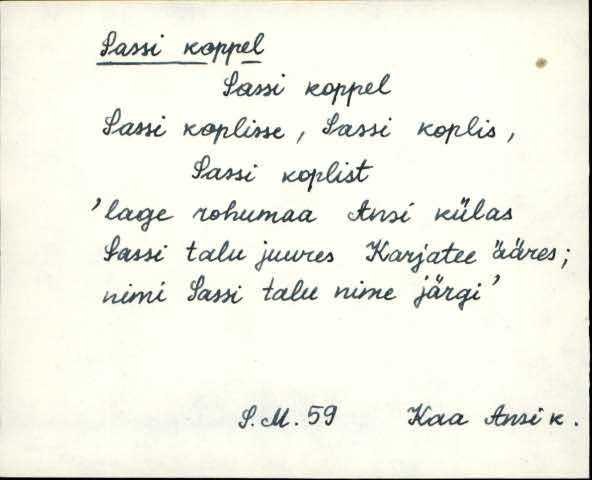 Sassi koppel
Sassi koppel
Sassi koplisse, Sassi koplis,
Sassi koplist
'lage rohumaa Ansi külas
Sassi talu juures Karjatee ääres;
nimi Sassi talu nime järgi'
S.M. 59 Kaa Ansi k.